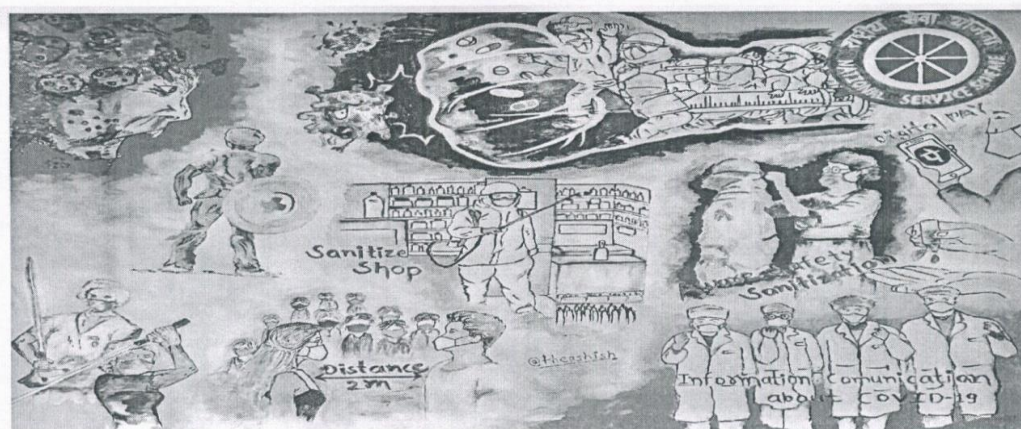 राष्ट्रीय सेवा योजना
NATIONAL SERVICE SCHEME
Digital PAY
पे
Sanitize
Shop
Safety
Sanitization
Distance
2m
@theashish
Information Comunication
about COVID-19